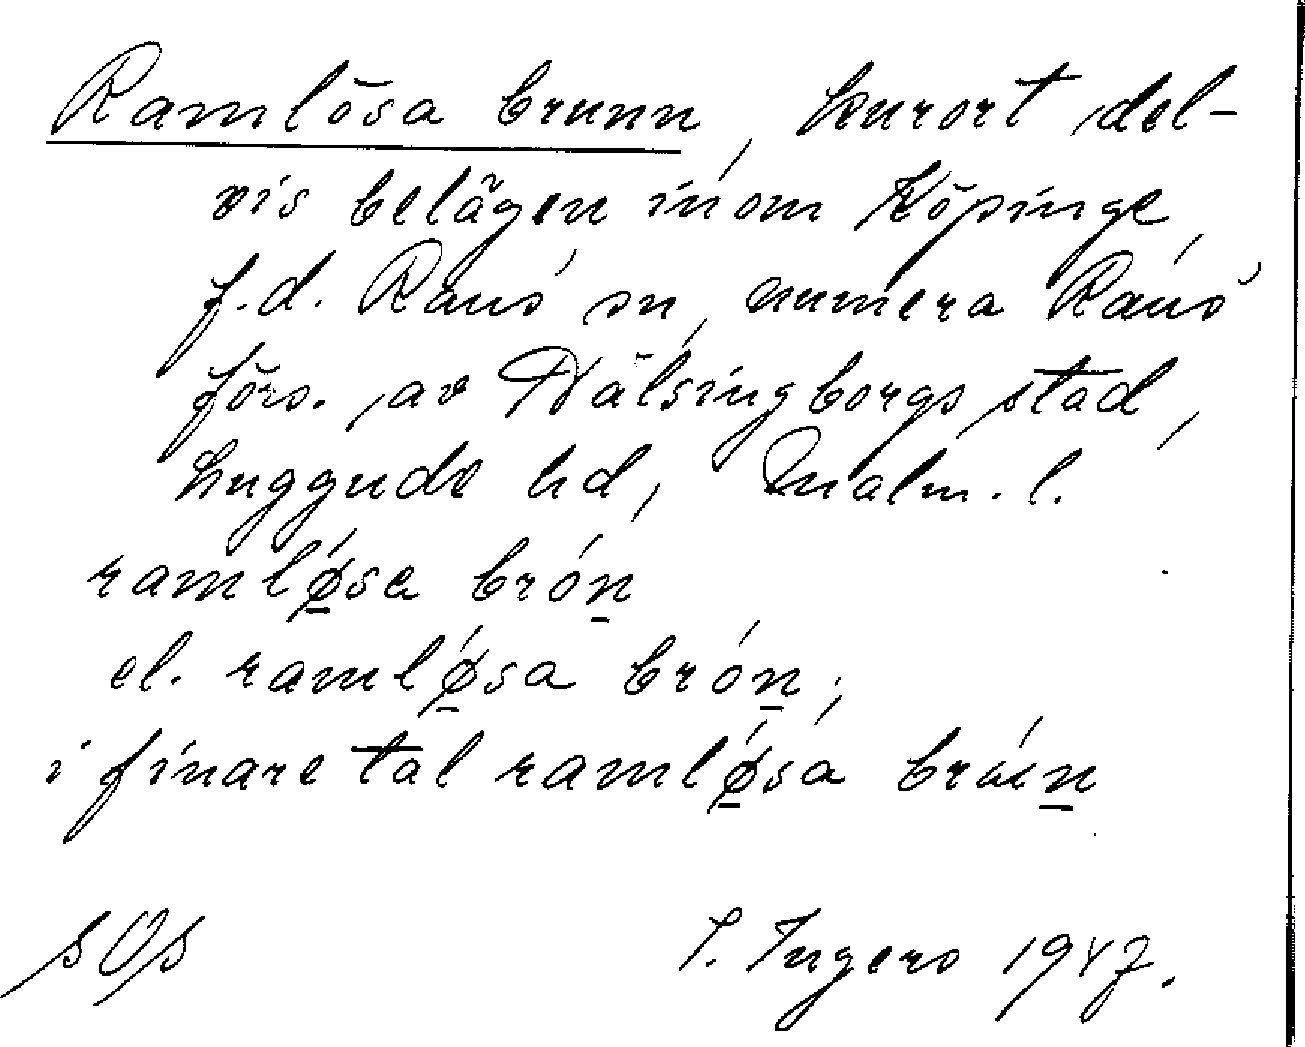 Ramlösa brunn, kurort del-
vis belägen inom Köpinge,
f.d. Raus sn, numera Raus
förs. av Hälsingborgs stad,
Luggude hd, Malm. l.
ramlǿ̱sa brón̲
el. ramlǿ̱sa brón̲;
i finare tal ramlǿ̱sa
SOS
I. Ingers 1947.